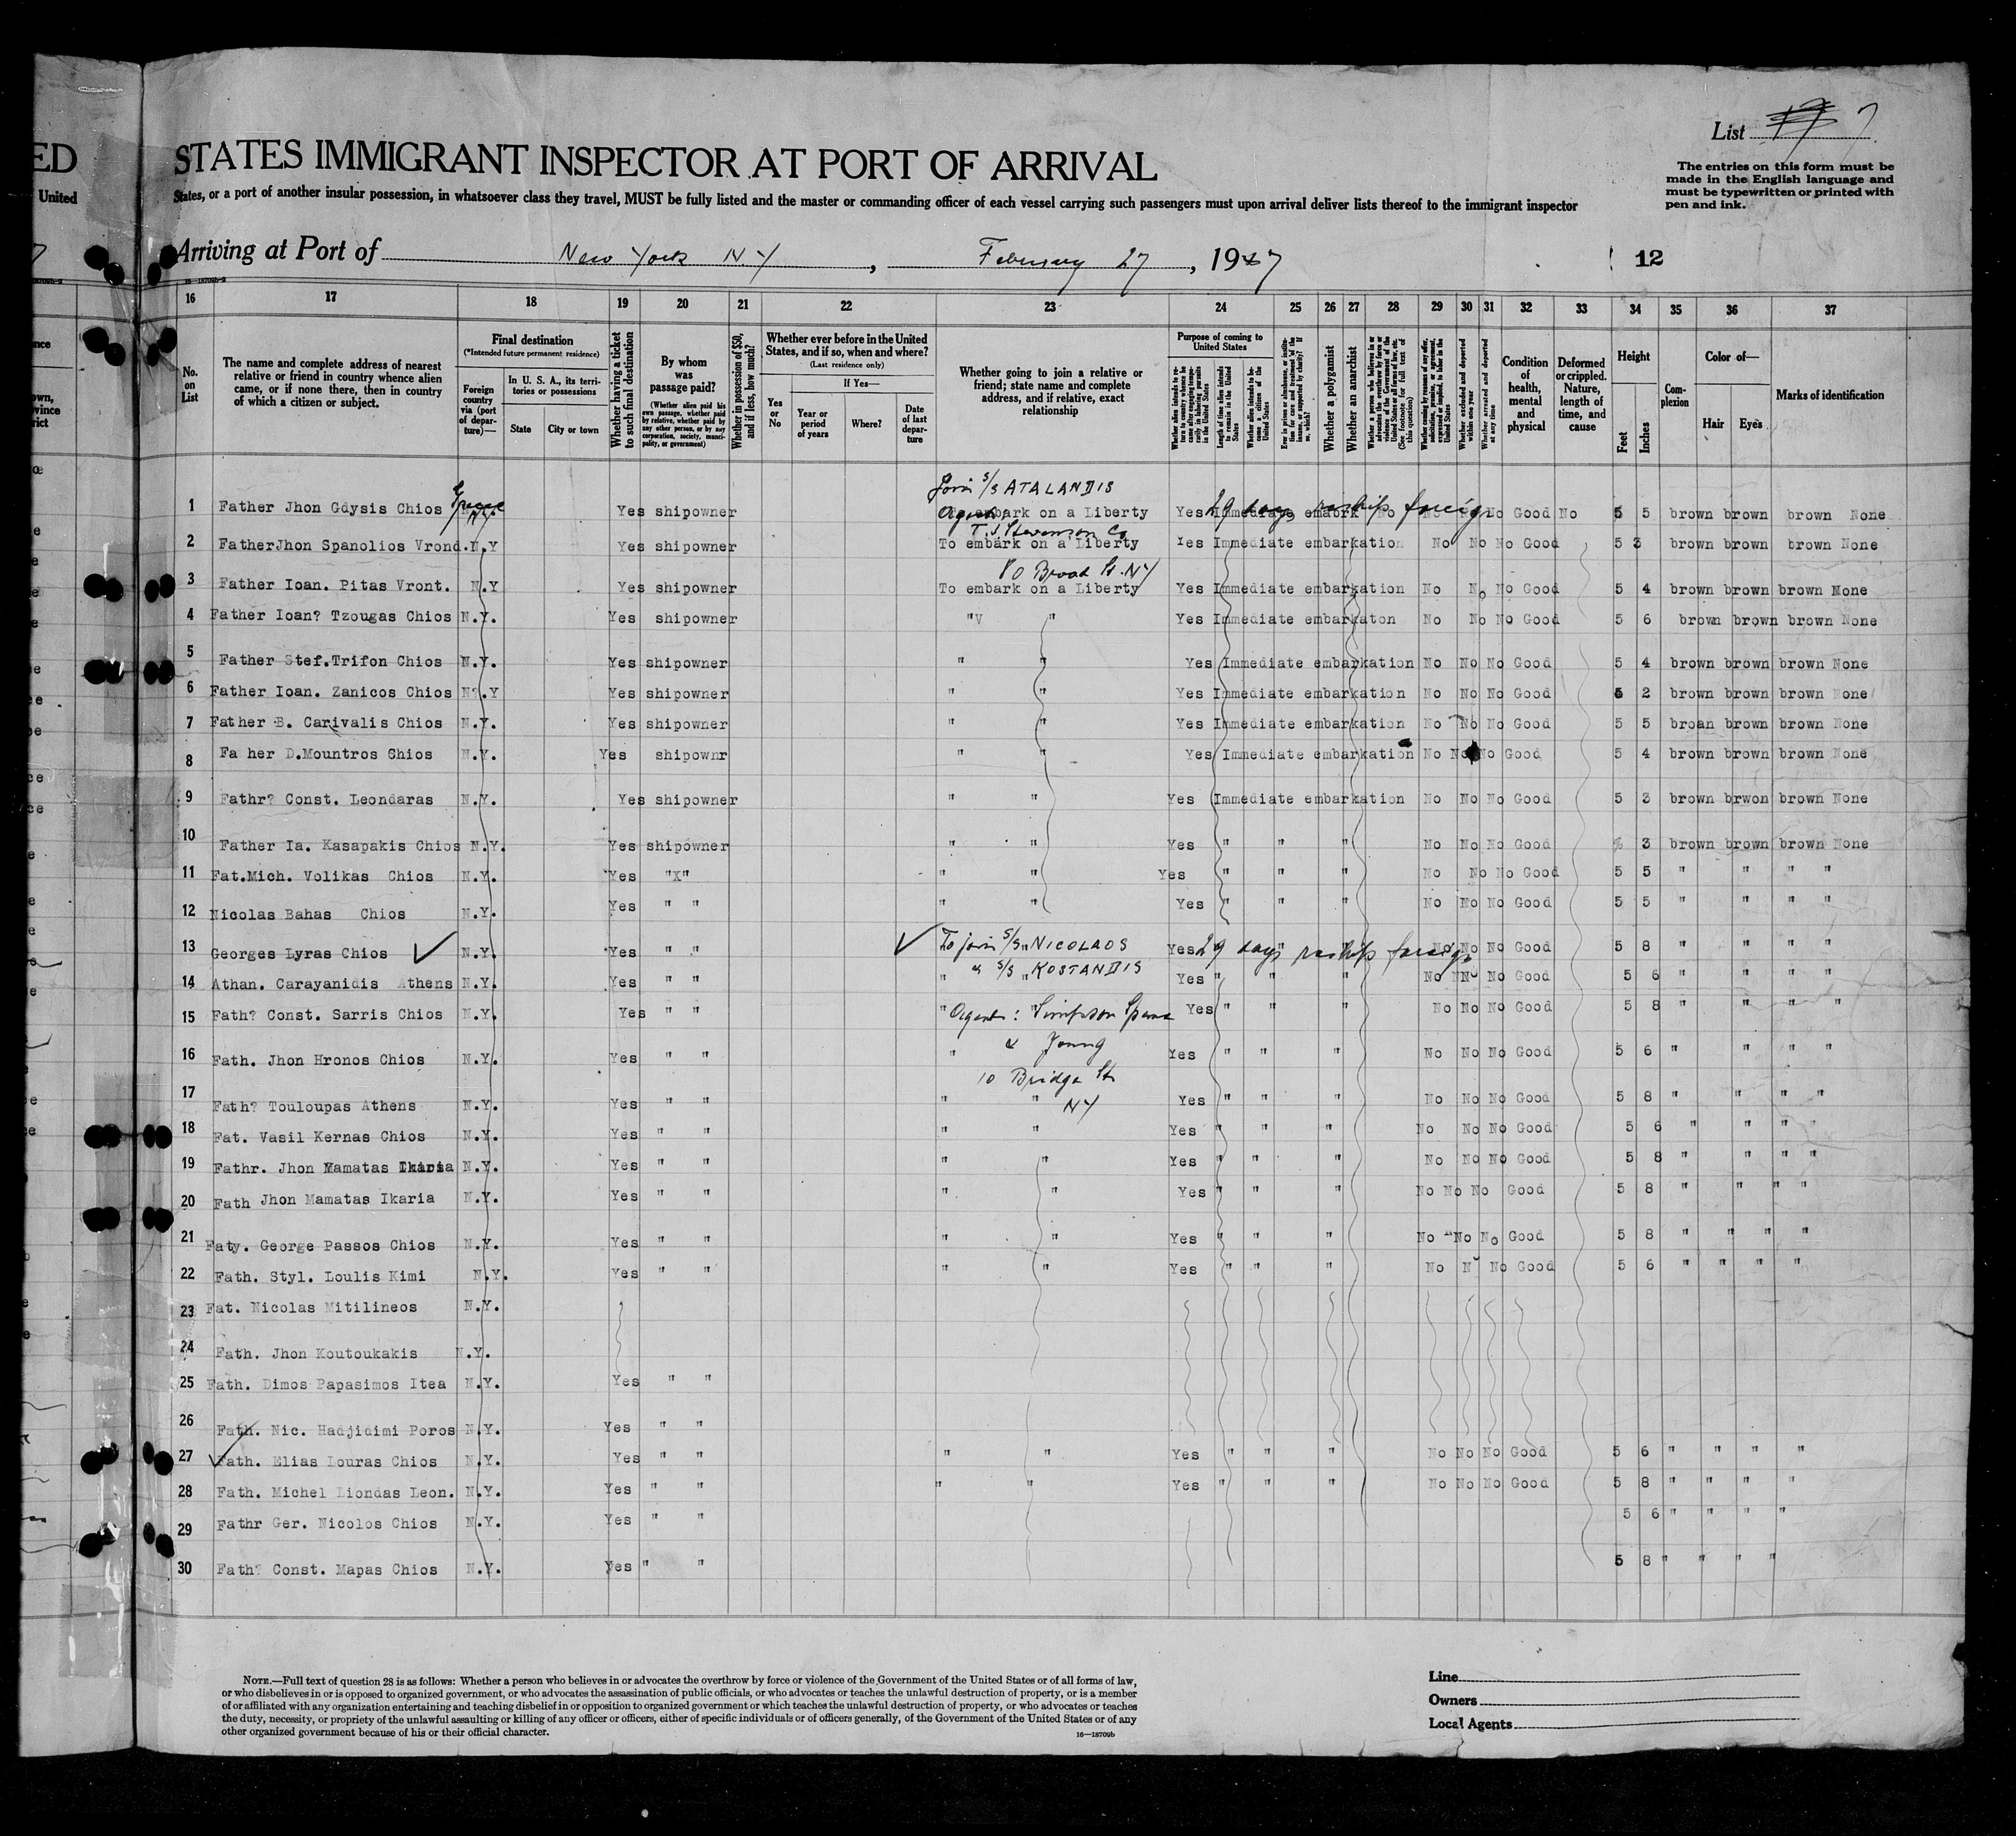 ED
United
STATES IMMIGRANT INSPECTOR AT PORT OF ARRIVAL
List 7
The entries on this form must be
made in the English language and
must be typewritten or printed with
pen and ink.
States, or a port of another insular possession, in whatsoever class they travel, MUST be fully listed and the master or commanding officer of each vessel carrying such passengers must upon arrival deliver lists thereof to the immigrant inspector
Arriving at Port of New York N Y, February 27, 1947
12
16 17 18 19 20 21 22 23 24 25 26 27 28 29 30 31 32 33 34 35 36 37
No. on List
The name and complete address of nearest
relative or friend in country whence alien
came, or if none there, then in country
of which a citizen or subject.
Final destination
(*Intended future permanent residence)
Foreign country via (port of departure)—
In U. S. A., its territories or possessions
State
City or town
Whether having a ticket to such final destination
By whom was passage paid?
(Whether alien paid his own passage, whether paid by relative, whether paid by any other person, or by any corporation, society, municipality, or government)
Whether in possession of $50, and if less, how much?
Whether ever before in the United States, and if so, when and where?
(Last residence only)
Yes or No
If Yes—
Year or period of years
Where?
Date of last departure
Whether going to join a relative or
friend; state name and complete
address, and if relative, exact
relationship
Purpose of coming to United States
Whether a polygamist
Whether an anarchist
Whether excluded and deported within one year
Whether arrested and deported at any time
Condition of health, mental and physical
Deformed or crippled. Nature, length of time, and cause
Height
Feet
Inches
Complexion
Color of—
Hair
Eyes
Marks of identification
Join S/S ATALANDIS
1 Father Jhon Gdysis Chios Greece Yes shipowner embark on a Liberty Yes 29 days reship foreign No Good No 5 5 brown brown brown None
T.J. Stevenson Co
2 FatherJhon Spanolios Vrond. N.Y Yes shipowner To embark on a Liberty Yes Immediate embarkation No No No Good 5 3 brown brown brown None
80 Broad St. NY
3 Father Ioan. Pitas Vront. N.Y Yes shipowner To embark on a Liberty Yes Immediate embarkation No No No Good 5 4 brown brown brown None
4 Father Ioan? Tzougas Chios N.Y. Yes shipowner "V " Yes Immediate embarkaton No No No Good 5 6 brown brown brown None
5 Father Stef.Trifon Chios N.Y. Yes shipowner " " Yes Immediate embarkation No No No Good 5 4 brown brown brown None
6 Father Ioan. Zanicos Chios N?.Y Yes shipowner " " Yes Immediate embarkation No No No Good 5 2 brown brown brown None
7 Father B. Carivalis Chios N.Y. Yes shipowner " " Yes Immediate embarkation No No No Good 5 5 broan brown brown None
8 Fa her D.Mountros Chios N.Y. Yes shipownr " " Yes Immediate embarkation No No No Good 5 4 brown brown brown None
9 Fathr? Const. Leondaras N.Y. Yes shipowner " " Yes Immediate embarkation No No No Good 5 3 brown brwon brown None
10 Father Ia. Kasapakis Chios N.Y. Yes shipowner " " Yes " " " No No No Good % 3 brown brown brown None
11 Fat.Mich. Volikas Chios N.Y. Yes "X" " " Yes " " " No No No Good 5 5 " " " "
12 Nicolas Bahas Chios N.Y. Yes " " " " Yes " " " No No No Good 5 5 " " " "
13 Georges Lyras Chios N.Y. Yes " " To join S/S "NICOLAOS Yes 29 days reship foreign No No No Good 5 8 " " " "
14 Athan. Carayanidis Athens N.Y. Yes " " " " S/S "KOSTANDIS Yes " " " No No No Good 5 6 " " " "
15 Fath? Const. Sarris Chios N.Y. Yes " " " Agents: Simpson Spence Yes " " " No No No Good 5 8 " " " "
16 Fath. Jhon Hronos Chios N.Y. Yes " " " & Young Yes " " " No No No Good 5 6 " " " "
10 Bridge St
17 Fath? Touloupas Athens N.Y. Yes " " " " NY Yes " " " No No No Good 5 8 " " " "
18 Fat. Vasil Kernas Chios N.Y. Yes " " " " Yes " " " No No No Good 5 6 " " " "
19 Fathr. Jhon Mamatas Ikaria N.Y. Yes " " " " Yes " " " No No No Good 5 8 " " " "
20 Fath Jhon Mamatas Ikaria N.Y. Yes " " " " Yes " " " No No No Good 5 8 " " " "
21 Faty. George Passos Chios N.Y. Yes " " " " Yes " " " No No No Good 5 8 " " " "
22 Fath. Styl. Loulis Kimi N.Y. Yes " " " " Yes " " " No N No Good 5 6 " " " "
23 Fat. Nicolas Mitilineos N.Y.
24 Fath. Jhon Koutoukakis N.Y.
25 Fath. Dimos Papasimos Itea N.Y. Yes " "
26 Fath. Nic. Hadjidimi Poros N.Y. Yes " "
27 Fath. Elias Louras Chios N.Y. Yes " " " " Yes " " " No No No Good 5 6 " " " "
28 Fath. Michel Liondas Leon. N.Y. Yes " " " " Yes " " " No No No Good 5 8 " " " "
29 Fathr Ger. Nicolos Chios N.Y. Yes " " 5 6 " " " "
30 Fath? Const. Mapas Chios N.Y. Yes " " 5 8 " " " "
NOTE.—Full text of question 28 is as follows: Whether a person who believes in or advocates the overthrow by force or violence of the Government of the United States or of all forms of law,
or who disbelieves in or is opposed to organized government, or who advocates the assassination of public officials, or who advocates or teaches the unlawful destruction of property, or is a member
of or affiliated with any organization entertaining and teaching disbelief in or opposition to organized government or which teaches the unlawful destruction of property, or who advocates or teaches
the duty, necessity, or propriety of the unlawful assaulting or killing of any officer or officers, either of specific individuals or of officers generally, of the Government of the United States or of any
other organized government because of his or their official character.
16—18709b
Line
Owners
Local Agents